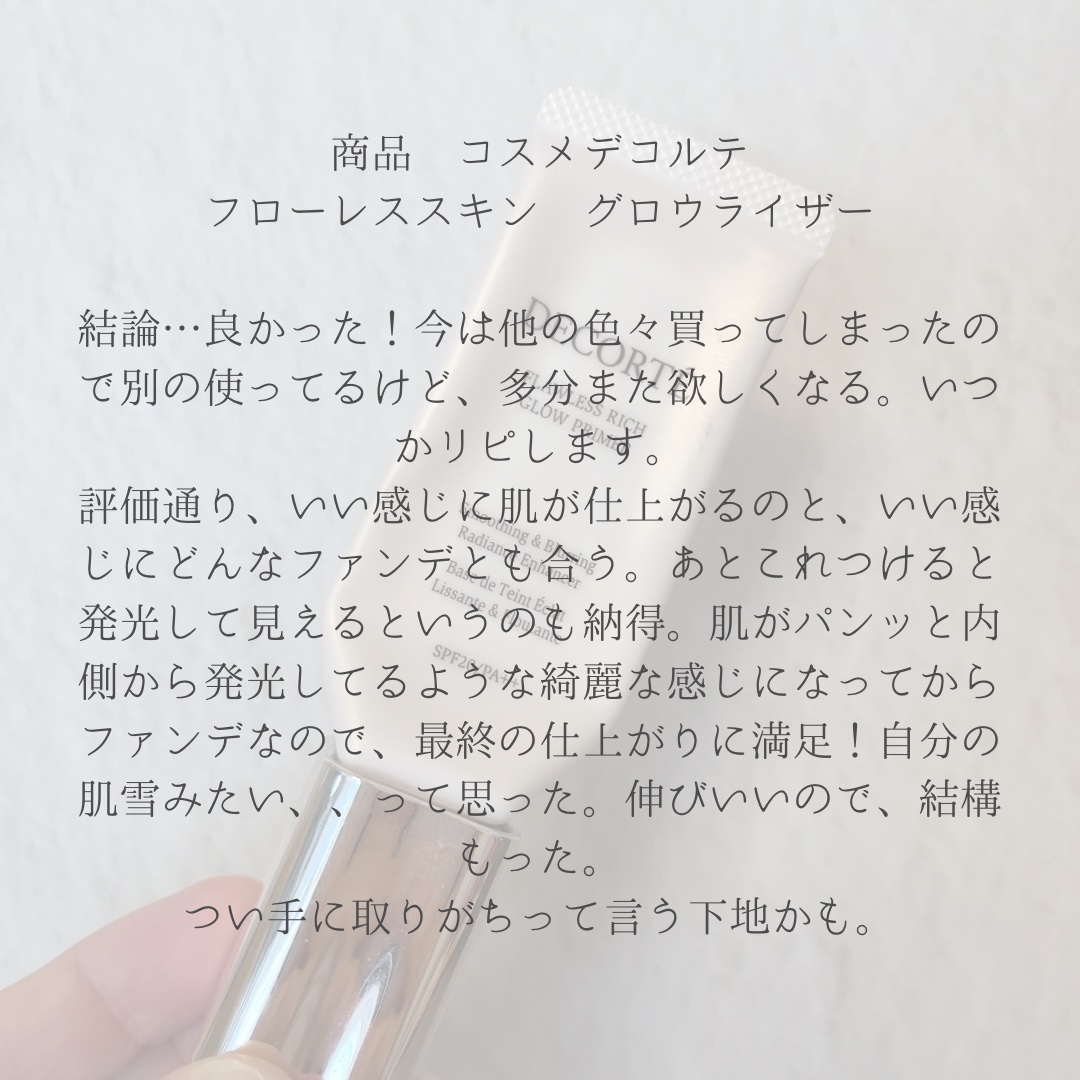 商品　コスメデコルテ
フローレススキン　グロウライザー
結論…良かった！今は他の色々買ってしまったの
で別の使ってるけど、多分また欲しくなる。いつ
かリピします。
評価通り、いい感じに肌が仕上がるのと、いい感
じにどんなファンデとも合う。あとこれつけると
発光して見えるというのも納得。肌がパンッと内
側から発光してるような綺麗な感じになってから
ファンデなので、最終の仕上がりに満足！自分の
肌雪みたい、、って思った。伸びいいので、結構
もった。
つい手に取りがちって言う下地かも。
DECORTÉ
FLAWLESS RICH
GLOW PRIMER
Smoothing & Blurring
Radiance Enhancer
Base de Teint Éclat
Lissante & Floutante
SPF20/PA++